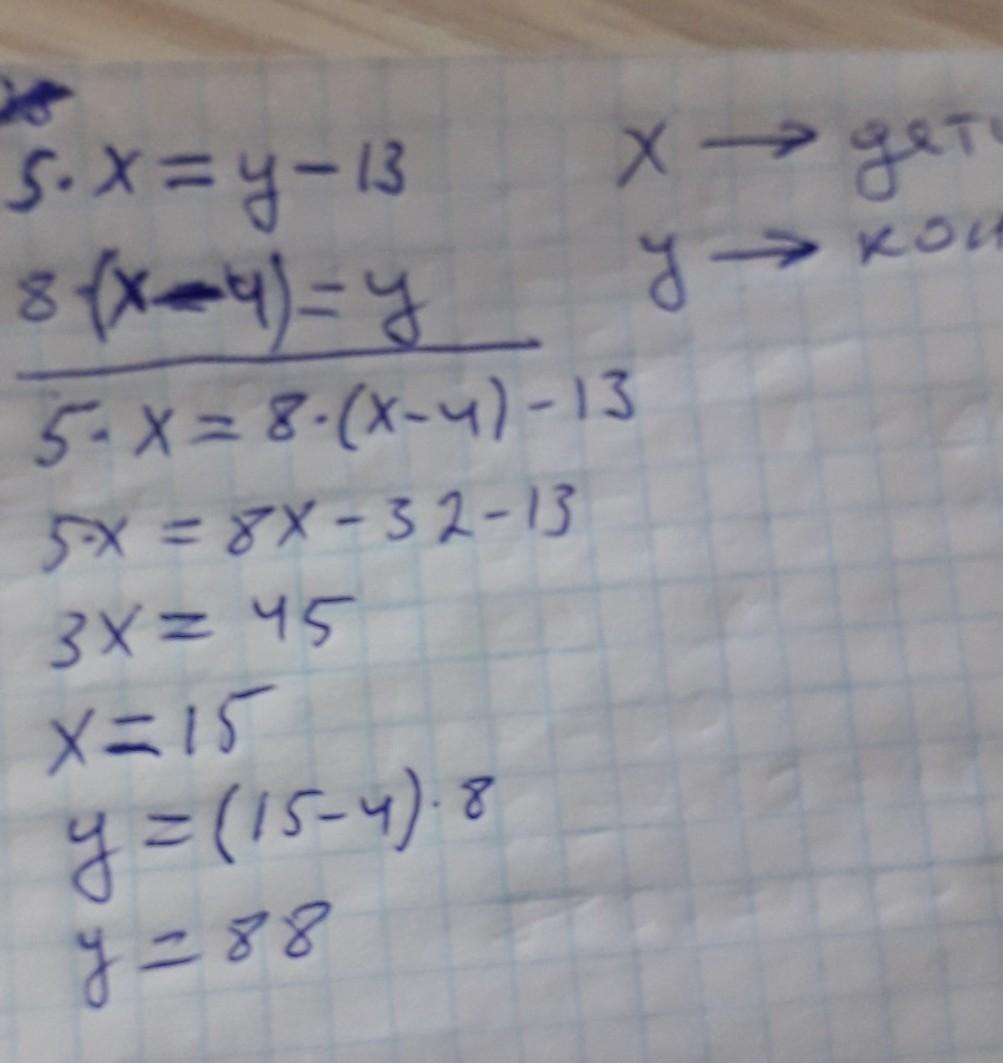 5·x=y-13
x → дети
8·(x-4)=y
y →
5·x=8·(x-4)-13
5·x=8x-32-13
3x=45
x=15
y=(15-4)·8
y=88